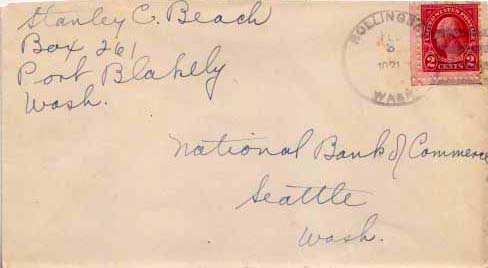 Stanley C. Beach
Box 261
Port Blakely
Wash.
UNITED STATES POSTAGE
2 CENTS 2
WASH
National Bank of Commerce
Seattle
Wash.